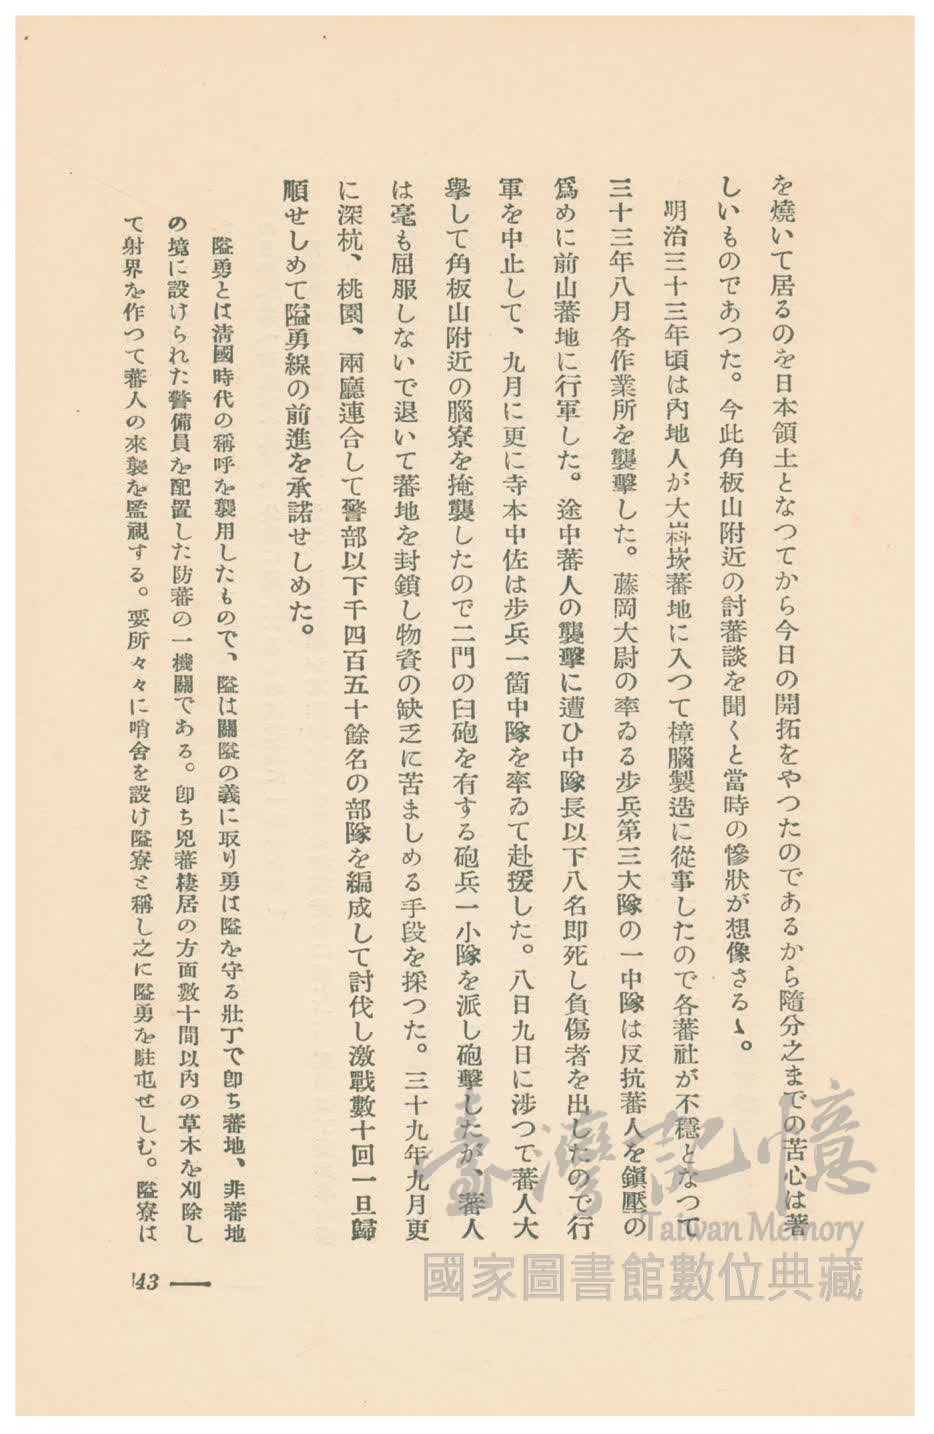 を燒いて居るのを日本領土となつてから今日の開拓をやつたのであるから隨分之までの苦心は著
しいものであつた。今此角板山附近の討蕃談を聞くと當時の慘狀が想像さるゝ。
明治三十三年頃は內地人が大嵙崁蕃地に入つて樟腦製造に從事したので各蕃社が不穩となつて
三十三年八月各作業所を襲擊した。藤岡大尉の率ゐる步兵第三大隊の一中隊は反抗蕃人を鎭壓の
爲めに前山蕃地に行軍した。途中蕃人の襲擊に遭ひ中隊長以下八名卽死し負傷者を出したので行
軍を中止して、九月に更に寺本中佐は步兵一箇中隊を率ゐて赴援した。八日九日に涉つて蕃人大
擧して角板山附近の腦寮を掩襲したので二門の臼砲を有する砲兵一小隊を派し砲擊したが、蕃人
は毫も屈服しないで退いて蕃地を封鎖し物資の缺乏に苦ましめる手段を採つた。三十九年九月更
に深杭、桃園、兩廳連合して警部以下千四百五十餘名の部隊を編成して討伐し激戰數十回一旦歸
順せしめて隘勇線の前進を承諾せしめた。
隘勇とは淸國時代の稱呼を襲用したもので、隘は關隘の義に取り勇は隘を守る壯丁で卽ち蕃地、非蕃地
の境に設けられた警備員を配置した防蕃の一機關である。卽ち兇蕃棲居の方面數十間以內の草木を刈除し
て射界を作つて蕃人の來襲を監視する。要所々々に哨舍を設け隘寮と稱し之に隘勇を駐屯せしむ。隘寮は
43
臺灣記憶
Taiwan Memory
國家圖書館數位典藏